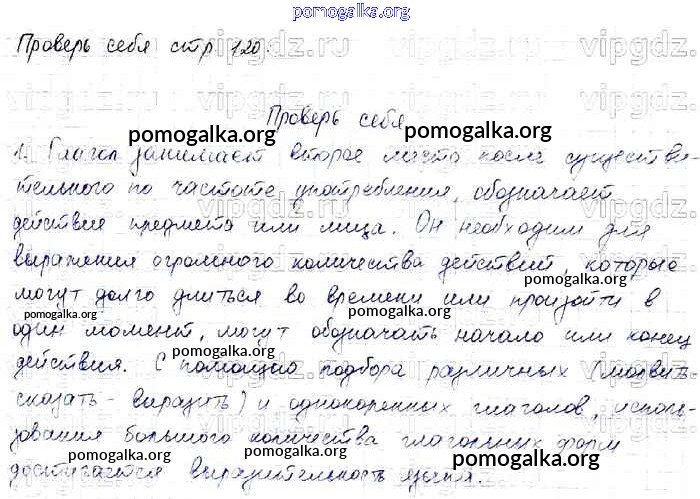 pomogalka.org
Проверь себя стр 120.
Проверь себя
1. Глагол занимает второе место после существи-
тельного по частоте употребления, обозначает
действие предмета или лица. Он необходим для
выражения огромного количества действий, которые
могут долго длиться во времени или произойти в
один момент, могут обозначать начало или конец
действия. С помощью подбора различных (молвить-
сказать - выразить) и однокоренных глаголов, исполь-
зования большого количества глагольных форм
достигается выразительность языка.
pomogalka.org
pomogalka.org
pomogalka.org
pomogalka.org
pomogalka.org
pomogalka.org
pomogalka.org
pomogalka.org
pomogalka.org
pomogalka.org
vipgdz.ru